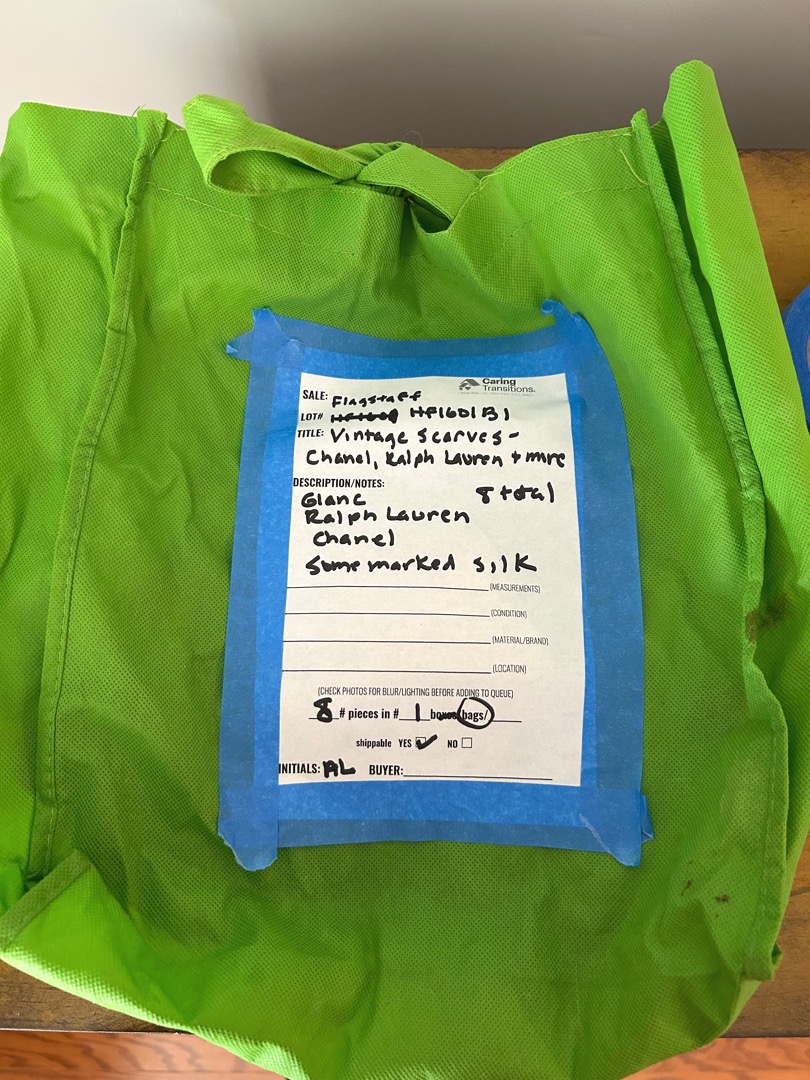 Caring
Transitions.
SALE: Flagstaff
LOT# HF1601B1
TITLE: Vintage Scarves-
Chanel, Ralph Lauren + more
DESCRIPTION/NOTES:
Glanc 8 total
Ralph Lauren
Chanel
Some marked silk
(MEASUREMENTS)
(CONDITION)
(MATERIAL/BRAND)
(LOCATION)
(CHECK PHOTOS FOR BLUR/LIGHTING BEFORE ADDING TO QUEUE)
8 # pieces in # 1 boxes/bags/
shippable YES NO
INITIALS: AL BUYER: